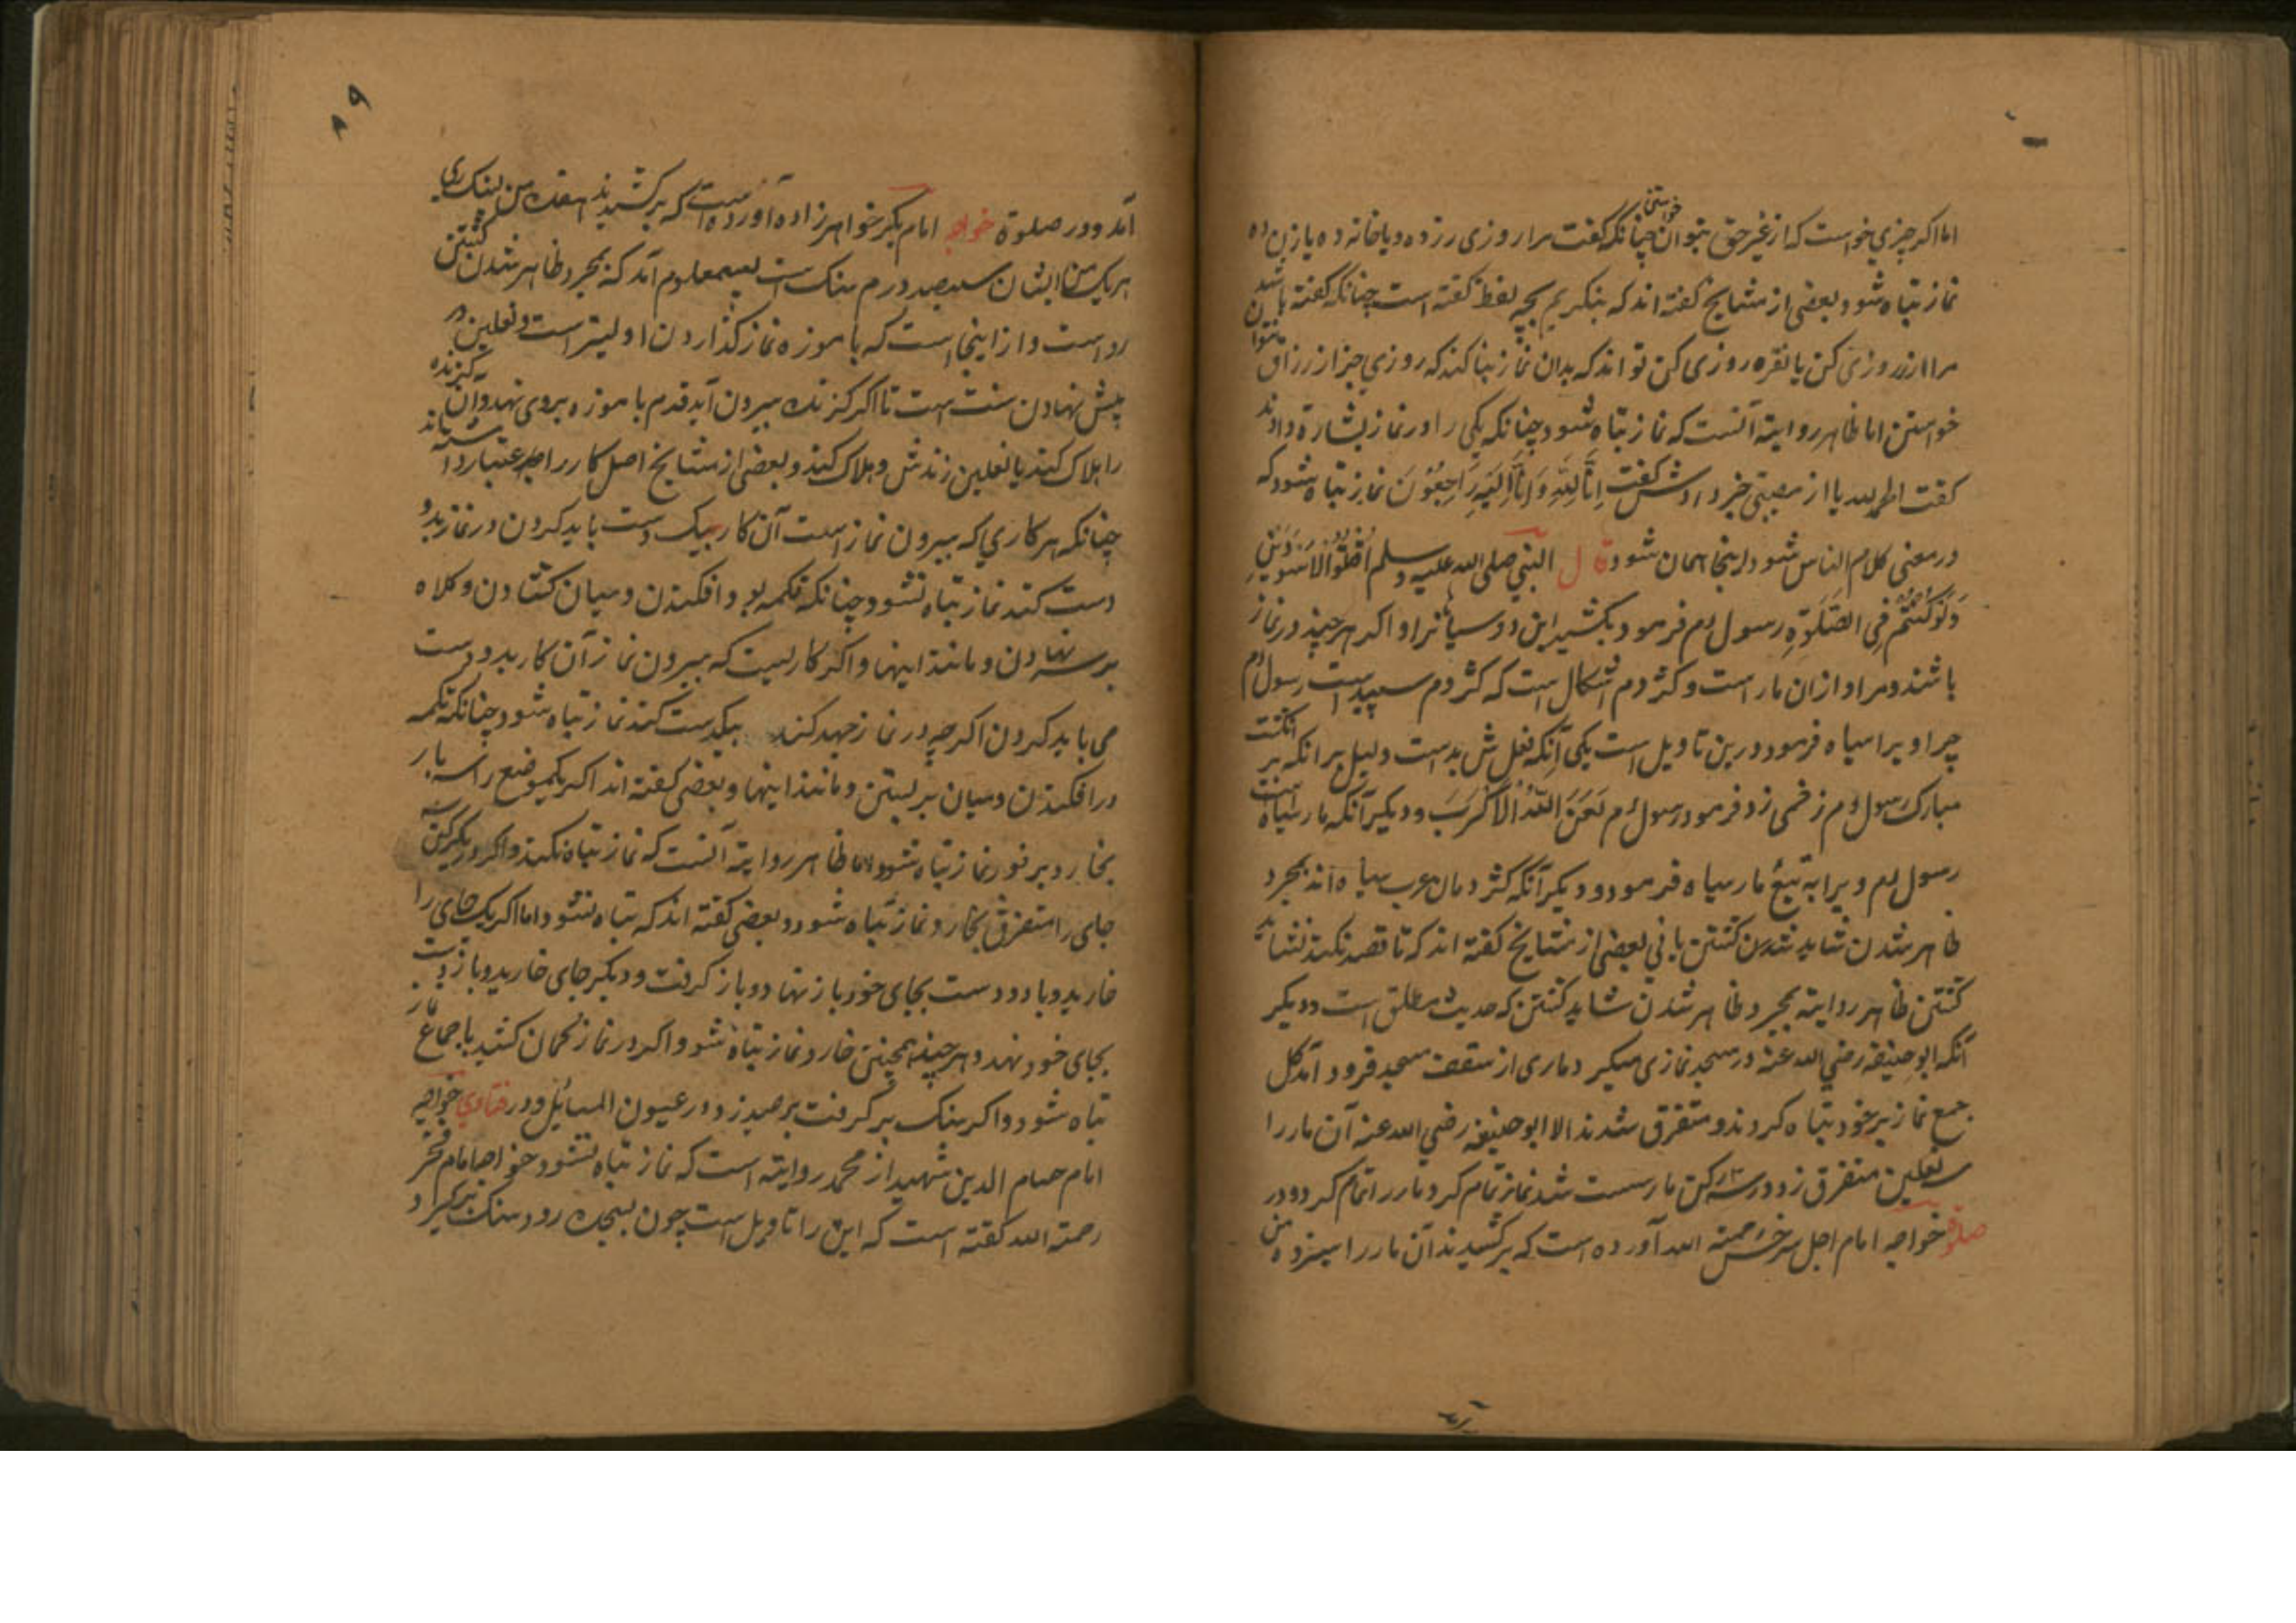 اما اکر چیزي خواست که از غیر حق بتوان خواستن چنانکه کفت مرا روزی رز ده و یا خانه ده یا زن ده
نماز تباه شود و بعضی از مشایخ کفته اند که بنکریم بچه لفظ کفته است چنانکه کفته باشد
مرا از زر روزی کن یا نقره روزی کن تواند که بدان نماز بنا کند که روزي جز از رزاق نتوان
خواستن اما ظاهر روایة آنست که نماز تباه شود چنانکه یکی را در نماز بشارة دادند
کفت الحمد لله یا از مصیبتی خبر دادش کفت اِنَّا لِلّٰهِ وَ اِنَّا اِلَیهِ رَاجِعُوْنَ نماز تباه شود که
در معنی کلام الناس شود اینجا همان شود قال النبي صلی الله علیه و سلم اُقْتُلُوا الاَسْوَدَیْنِ
وَلَوْ کُنْتُمْ فِی الصَّلٰوةِ رسول ءم فرمود بکشید این دو سیاه را و اکر هر چند در نماز
باشند و مراد از ان مار است و کژدم اشکال است که کژدم سپید است رسول ءم
چرا ویرا سیاه فرمود درین تاویل است یکی آنکه فعلش بدست دلیل برانکه بر انکشت
مبارک رسول ءم زخمی زد فرمود رسول ءم لَعَنَ اللّٰهُ الاَقْرَبَ و دیکر آنکه مار سیاه است
رسول ءم ویرا به تبع مار سیاه فرمود و دیکر آنکه کژدمان عرب سیاه اند بمجرد
ظاهر شدن شاید کشتن یا نی بعضی از مشایخ کفته اند که تا قصد نکند نشاید
کشتن ظاهر روایة بمجرد ظاهر شدن شاید کشتن که حدیث مطلق است و دیکر
آنکه ابو حنیفه رضي الله عنه در مسجد نمازی میکرد ماری از سقف مسجد فرود آمد کل
جمع نماز بر خود تباه کردند و متفرق شدند الا ابو حنیفه رضي الله عنه آن مار را
نعلین متفرق زد در سه رکن مار سست شد نماز تمام کرد و مار را تمام کرد و در
صلوة خواجه امام اجل سرخسی رحمته الله آورده است که بر کشیدند آن مار را سیزده من
آمد و در صلوة خواجه امام بکر خواهرزاده آورده است که بر کشیدند هفده من بسنک ری
هر یک من ایشان سیصد درم سنک است پس معلوم آمد که بمجرد ظاهر شدن کشتن
رواست و از اینجا است که با موزه نماز کذاردن اولیتر است و نعلین در
پیش نهادن سنت است تا اکر کزنده بیرون آید قدم با موزه بروی نهد و آن کزنده
را هلاک کند یا نعلین زندش و هلاک کند و بعضی از مشایخ اصل کار را اعتبار داشته اند
چنانکه هر کاري که بیرون نماز است آن کار بیک دست باید کردن در نماز بدو
دست کند نماز تباه نشود چنانکه تکمه بدر افکندن و میان کشادن و کلاه
بر سر نهادن و مانند اینها و اکر کاریست که بیرون نماز آن کار بدو دست
می باید کردن اکر چه در نماز جهد کند بیکدست کند نماز تباه شود چنانکه تکمه
در افکندن و میان بر بستن و مانند اینها و بعضی کفته اند اکر یکموضع را سه بار
بخارد بر فور نماز تباه شود اما ظاهر روایة آنست که نماز تباه نکند و اکر در یکرکن سه
جای را متفرق بخارد نماز تباه شود و بعضی کفته اند که تباه نشود اما اکر یک جای را
خارید و یا دو دست بجای خود باز نهاد و باز کرفت و دیکر جای خارید و باز دست
بجای خود نهد و هر چند همچنین خارد نماز تباه شود و اکر در نماز کمان کشید باجماع نماز
تباه شود و اکر سنک بر کرفت بر صید زد در عیون المسائل و در فتاوي خواجه
امام حسام الدین شهید از محمد روایة است که نماز تباه نشود خواجه امام فخر
رحمته الله کفته است که این را تاویل است چون بیک رود سنک بر کیرد